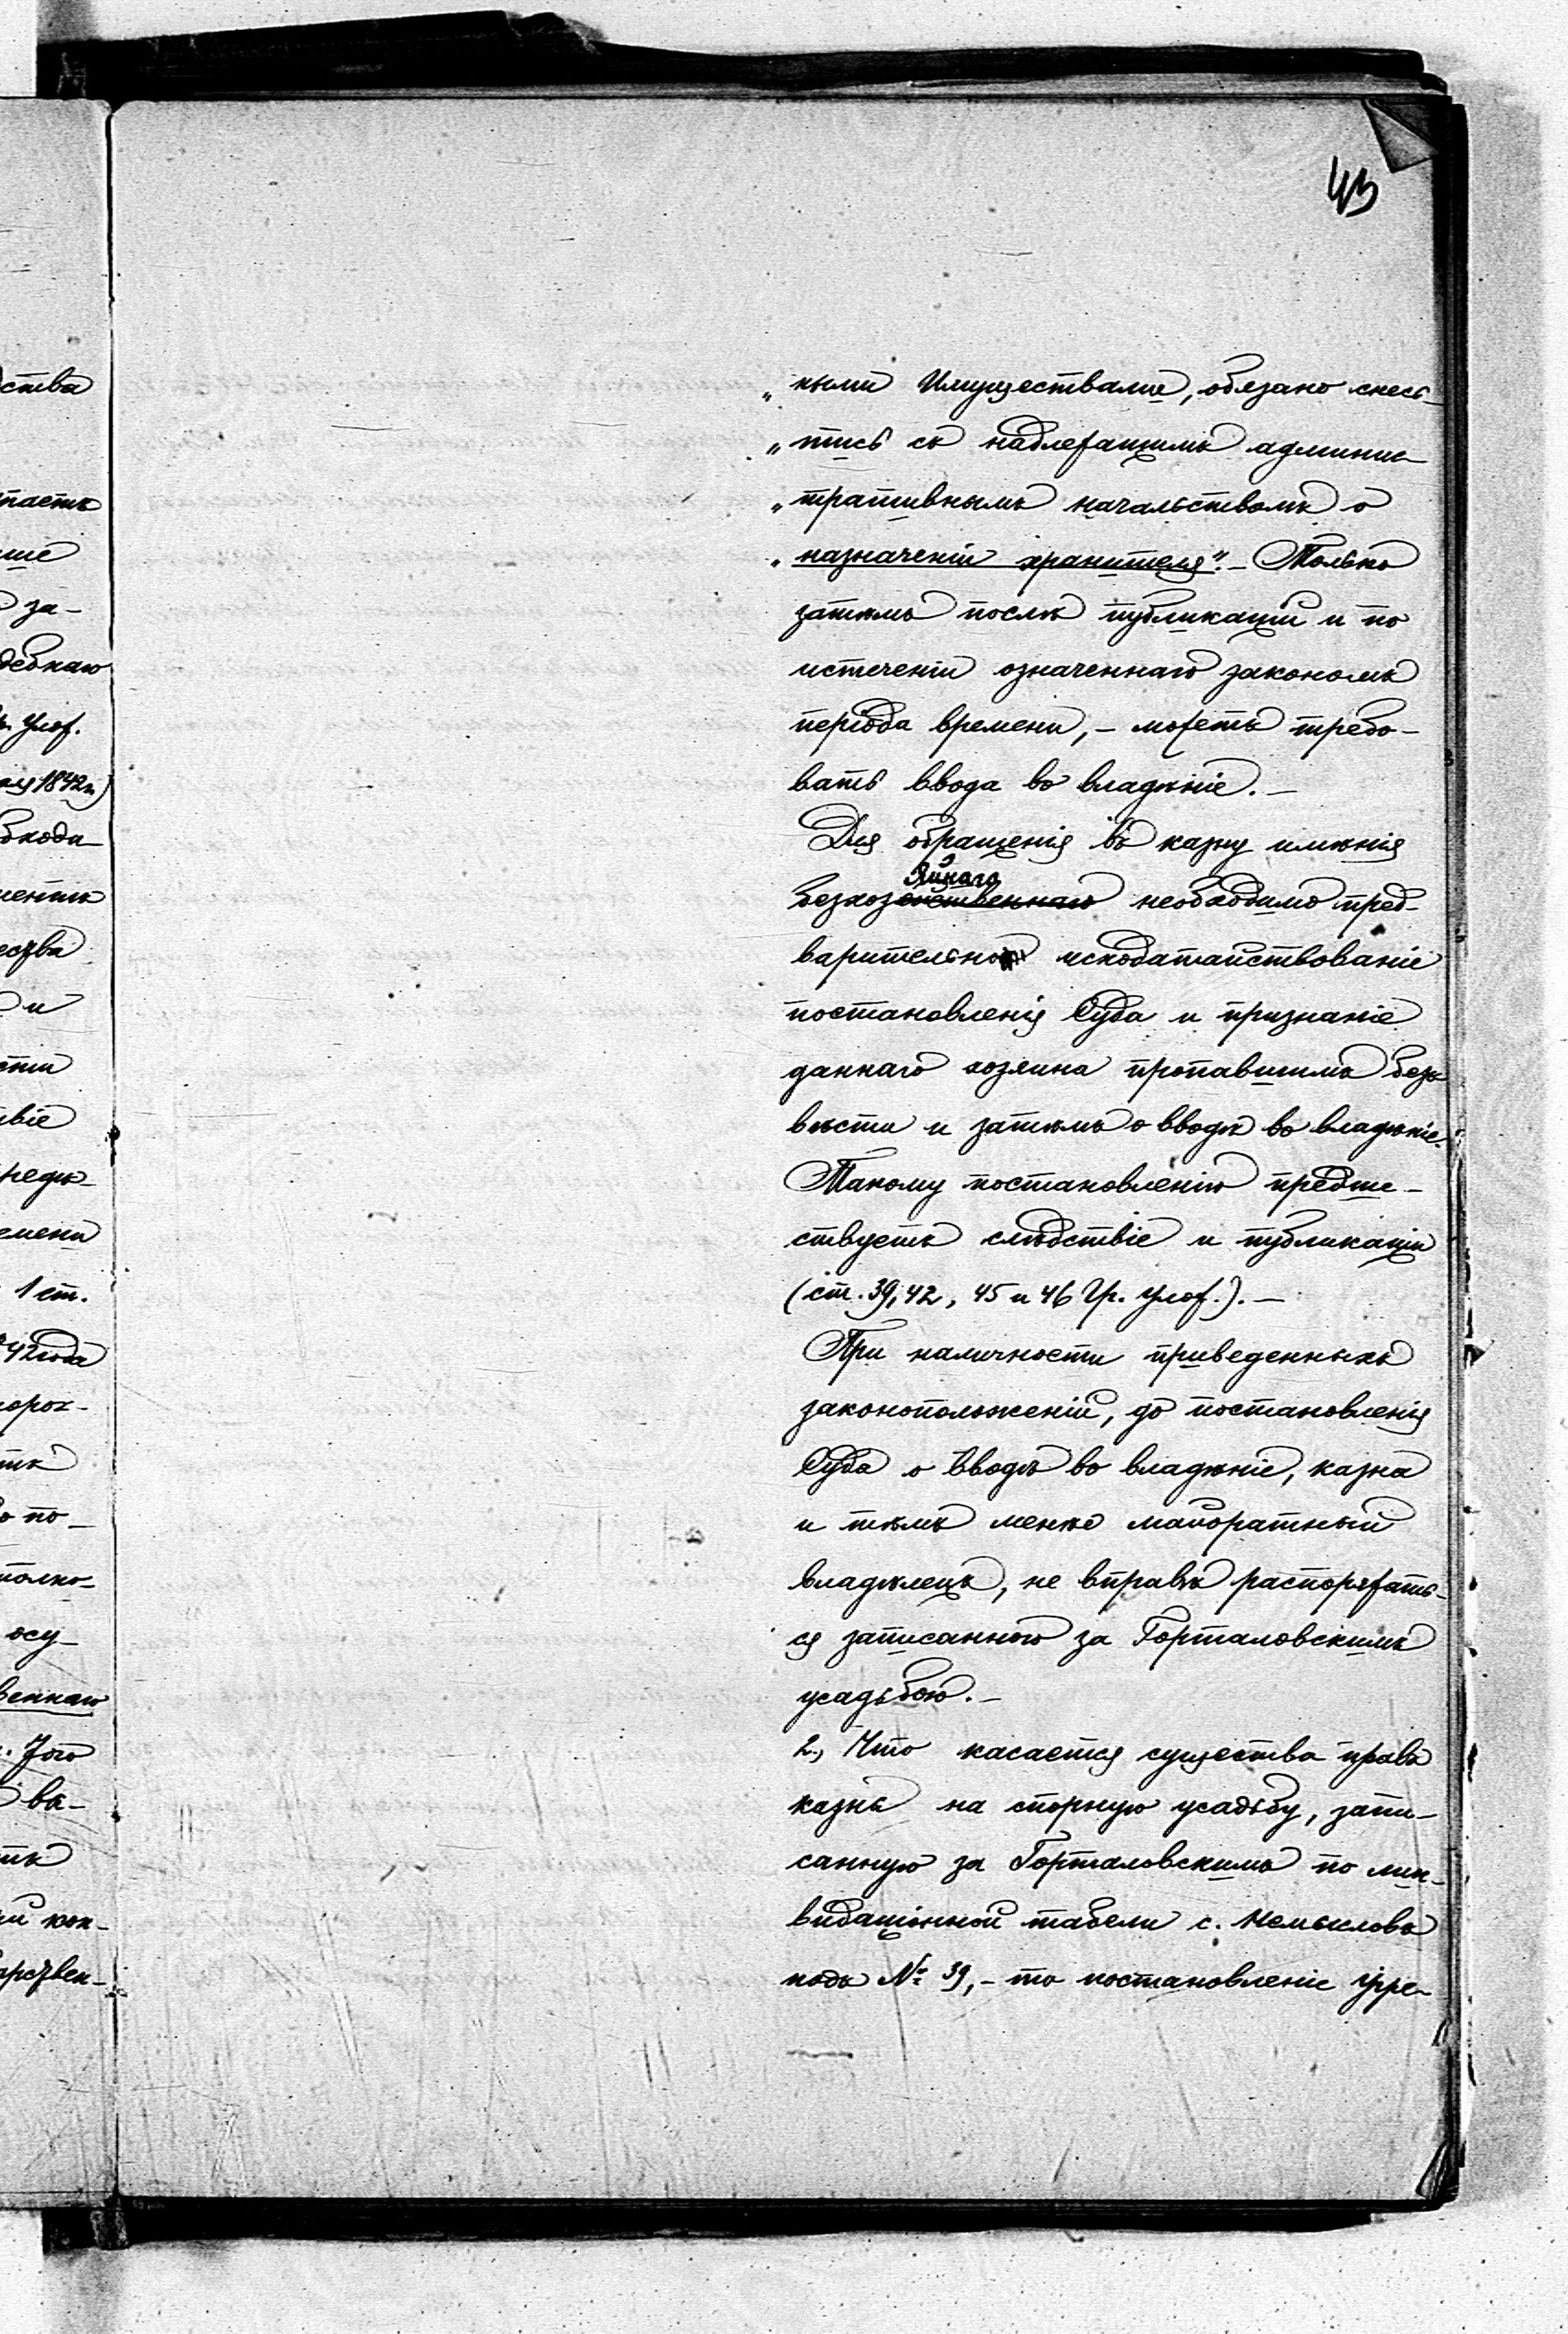 43
„ными Имуществами, обязано снес-
„тись съ надлежащимъ админис
„тративнымъ начальствомъ о
„назначеніи хранителя".- Только
затѣмъ послѣ публикаціи и по
истеченіи означеннаго закономъ
періода времени, - можетъ требо-
вать ввода во владѣніе. -
Для обращенія въ казну имѣнія
яйнаго
безхозяйственнаго необходимо пред-
варительно исходатайствованіе
постановленія Суда и признаніе
даннаго хозяина пропавшимъ безъ
вѣсти и затѣмъ о вводѣ во владѣніе.
Такому постановленію предше-
ствуетъ слѣдствіе и публикаціи
(ст. 39, 42, 45 и 46 Гр. улож.). -
При наличности приведенныхъ
законоположеній, до постановленія
Суда о вводѣ во владѣніе, казна
и тѣмъ менѣе маіоратный
владѣлецъ, не вправѣ распоряжать-
ся записанною за Горталовскимъ
усадьбою. -
2., Что касается существа права
казны на спорную усадьбу, запи-
санную за Горталовскимъ по лик-
видаціонной табели с.
подъ № 39, - то постановленіе Учре-
ства
за-
улож.
1842
и
1 ст.
42 года
по-
осу-
веннаго